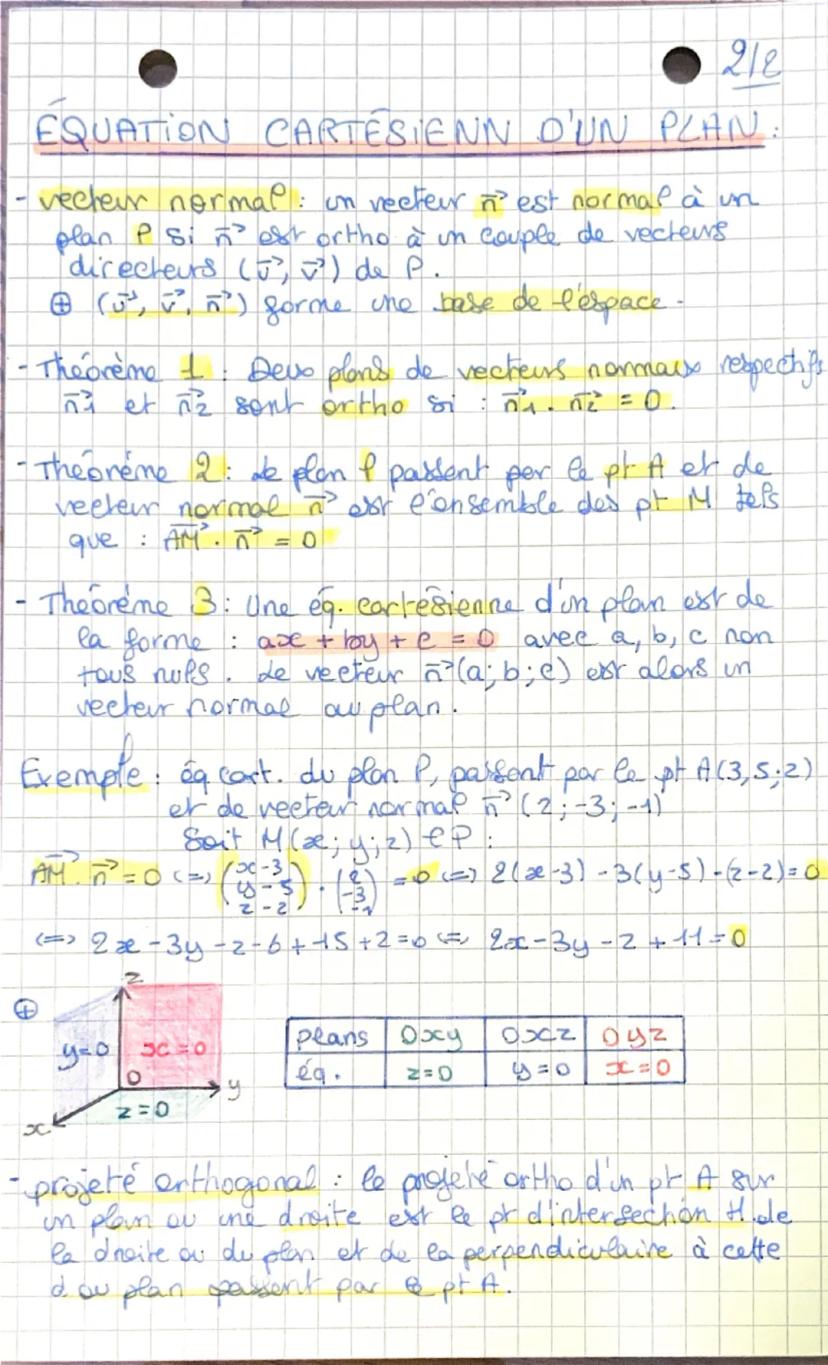 2/2
ÉQUATION CARTÉSIENN D'UN PLAN :
- vecteur normal : un vecteur n⃗ est normal à un
plan P si n⃗ est ortho à un couple de vecteurs
directeurs (u⃗, v⃗) de P.
⊕ (u⃗, v⃗, n⃗) forme une base de l'espace.
- Théorème 1 : Deux plans de vecteurs normaux respectifs
n⃗1 et n⃗2 sont ortho si : n⃗1 . n⃗2 = 0.
- Théorème 2 : Le plan P passent per le pt A et de
vecteur normal n⃗ est l'ensemble des pt M tels
que : AM⃗ . n⃗ = 0
- Théorème 3 : Une éq. cartésienne d'un plan est de
la forme : ax + by + c = 0 avec a, b, c non
tous nuls. Le vecteur n⃗(a; b; c) est alors un
vecteur normal au plan.
Exemple : éq cart. du plan P, passent par le pt A(3, 5; 2)
et de vecteur normal n⃗ (2; -3; -1)
Soit M(x; y; z) ∈ P :
AM⃗ . n⃗ = 0 <=> (x-3 y-5 z-2) . (2 -3 -1) = 0 <=> 2(x-3) - 3(y-5) - (z-2) = 0
<=> 2x - 3y - z - 6 + 15 + 2 = 0 <=> 2x - 3y - z + 11 = 0
⊕ z
y=0 x=0
0 y
z=0
x
plans Oxy Oxz Oyz
éq. z=0 y=0 x=0
- projeté orthogonal : le projeté ortho d'un pt A sur
un plan ou une droite est le pt d'intersection H de
la droite ou du plan et de la perpendiculaire à cette
d ou plan passent par le pt A.